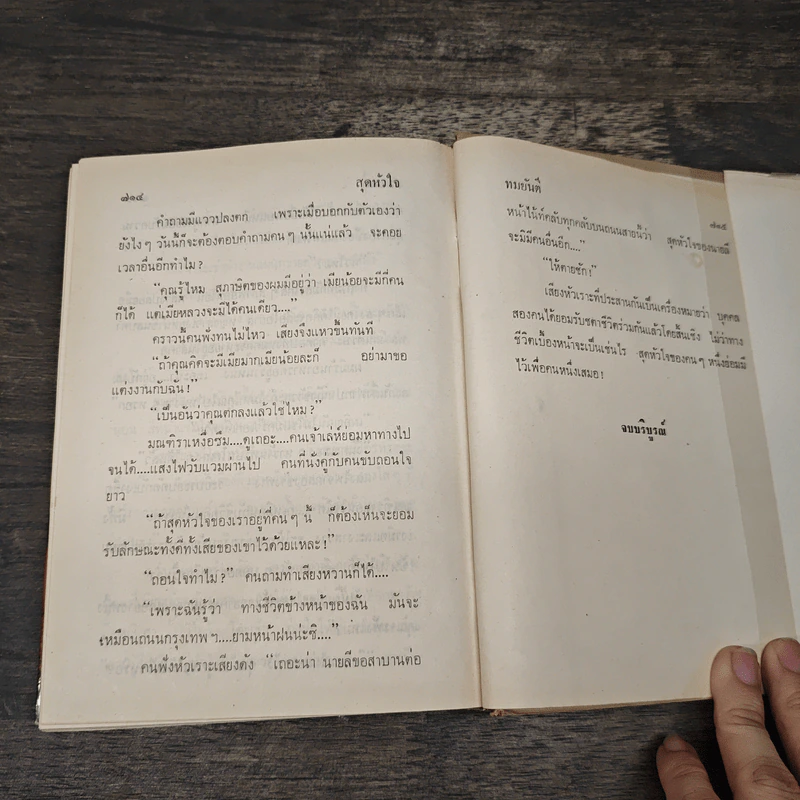 ๗๑๔
สุดหัวใจ
คำถามมีแววปลงตก เพราะเมื่อบอกกับตัวเองว่า
ยังไงๆ วันนี้ก็จะต้องตอบคำถามคนๆ นั้นแน่แล้ว จะคอย
เวลาอื่นอีกทำไม?
“คุณรู้ไหม สุภาษิตของผมมีอยู่ว่า เมียน้อยจะมีกี่คน
ก็ได้ แต่เมียหลวงจะมีได้คนเดียว....”
คราวนี้คนฟังทนไม่ไหว เสียงจึงแหวขึ้นทันที
“ถ้าคุณคิดจะมีเมียมากเมียน้อยละก็ อย่ามาขอ
แต่งงานกับฉัน!”
“เป็นอันว่าคุณตกลงแล้วใช่ไหม?”
มณฑิราเหงื่อซึม....ดูเถอะ....คนเจ้าเล่ห์ย่อมหาทางไป
จนได้....แสงไฟวับแวมผ่านไป คนที่นั่งคู่กับคนขับถอนใจ
ยาว
“ถ้าสุดหัวใจของเราอยู่ที่คนๆ นี้ ก็ต้องเห็นจะยอม
รับลักษณะทั้งดีทั้งเสียของเขาไว้ด้วยแหละ!”
“ถอนใจทำไม?” คนถามทำเสียงหวานก็ได้....
“เพราะฉันรู้ว่า ทางชีวิตข้างหน้าของฉัน มันจะ
เหมือนถนนกรุงเทพฯ....ยามหน้าฝนน่ะซิ....”
คนฟังหัวเราะเสียงดัง “เถอะน่า นายลีขอสาบานต่อ
ทมยันตี
๗๑๕
หน้าไน้ท์คลับทุกคลับบนถนนสายนี้ว่า สุดหัวใจของนายลี
จะมิมีคนอื่นอีก....”
“ให้ตายซัก!”
เสียงหัวเราะที่ประสานกันเป็นเครื่องหมายว่า บุคคล
สองคนได้ยอมรับชตาชีวิตร่วมกันแล้วโดยสิ้นเชิง ไม่ว่าทาง
ชีวิตเบื้องหน้าจะเป็นเช่นไร สุดหัวใจของคนๆ หนึ่งย่อมมี
ไว้เพื่อคนหนึ่งเสมอ!
จบบริบูรณ์